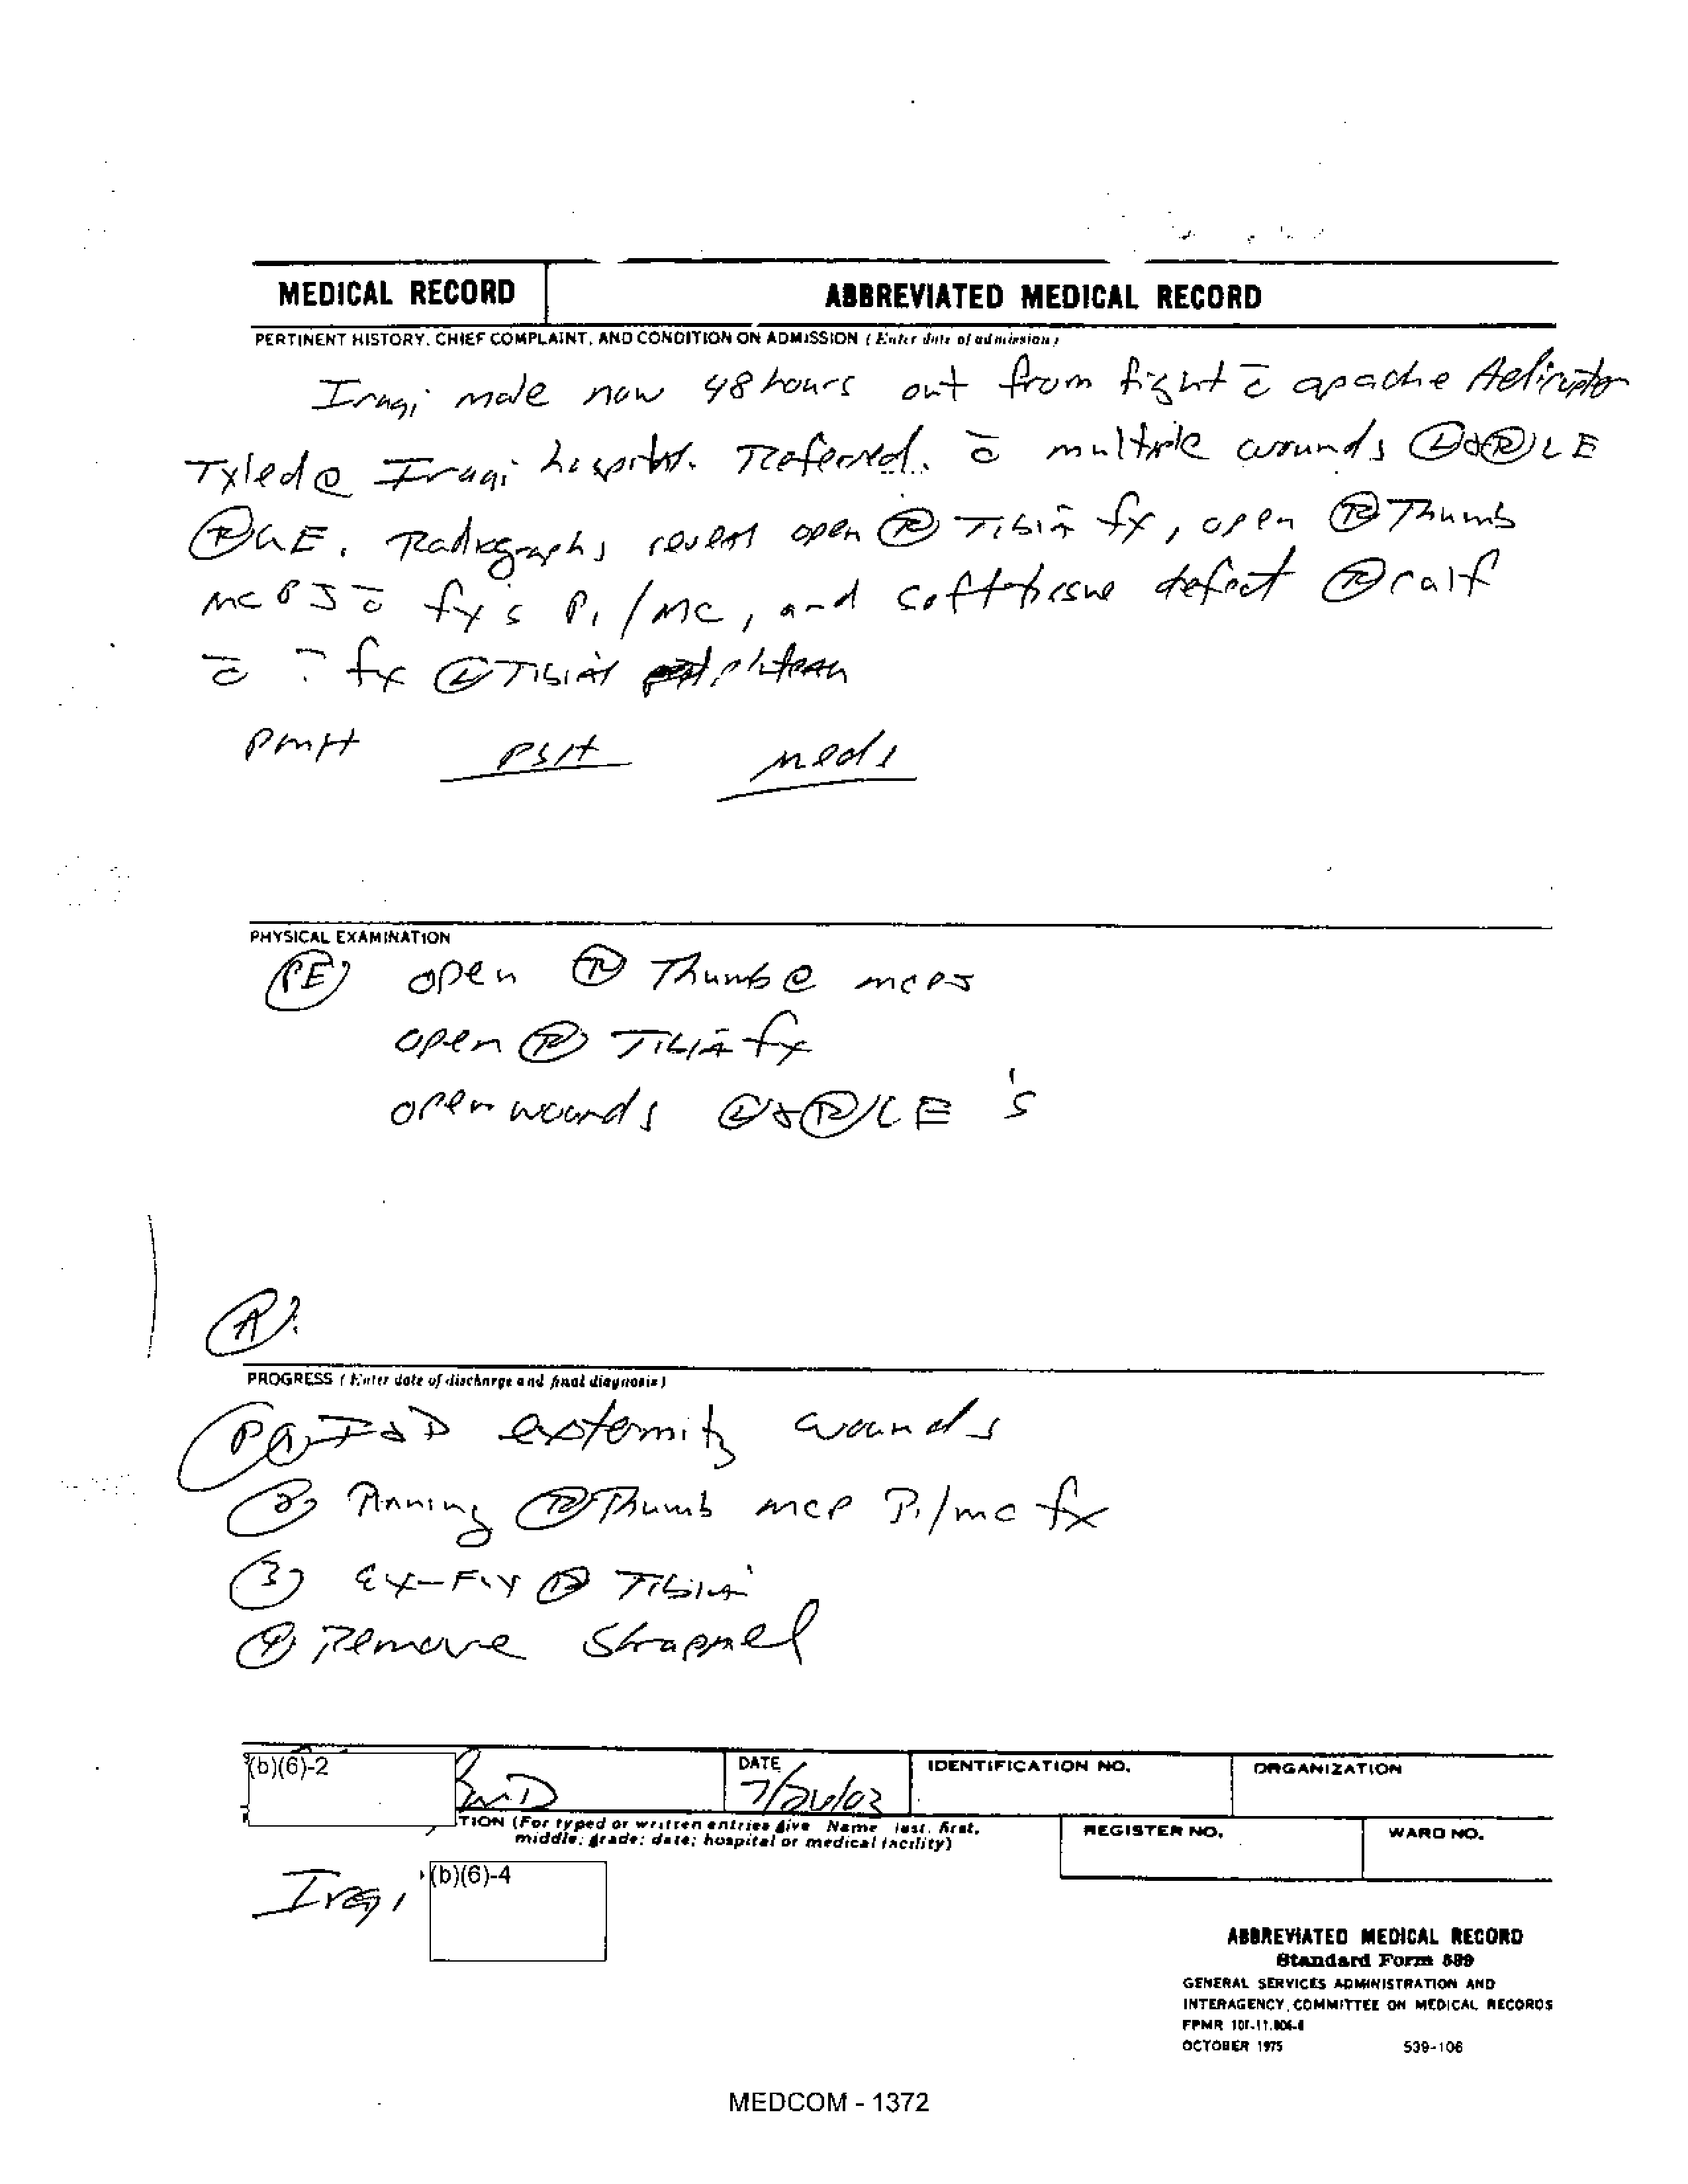 MEDICAL RECORD
ABBREVIATED MEDICAL RECORD
PERTINENT HISTORY, CHIEF COMPLAINT, AND CONDITION ON ADMISSION (Enter date of admission)
Iraqi male now 48 hours out from fight c̄ apache Helicopter
Txled @ Iraqi hospital. Referred. c̄ multiple wounds Ⓛ & Ⓡ LE
Ⓡ UE. Radiographs reveal open Ⓡ Tibia fx, open Ⓡ Thumb
MCPJ c̄ fx's P1/MC, and soft tissue defect Ⓡ calf
c̄ ? fx Ⓛ Tibial plateau
PMH PSH meds
PHYSICAL EXAMINATION
(PE) open Ⓡ Thumb @ MCPJ
open Ⓡ Tibia fx
open wounds Ⓛ & Ⓡ LE's
Ⓐ:
PROGRESS (Enter date of discharge and final diagnosis)
P I & D extremity wounds
2) Pinning Ⓡ Thumb MCP P1/MC fx
3) Ex-Fix Ⓡ Tibia
4) Remove Shrapnel
(b)(6)-2
MD
DATE
7/26/03
IDENTIFICATION NO.
ORGANIZATION
TION (For typed or written entries give Name last, first,
middle; grade; date; hospital or medical facility)
REGISTER NO.
WARD NO.
Iraqi
(b)(6)-4
ABBREVIATED MEDICAL RECORD
Standard Form 539
GENERAL SERVICES ADMINISTRATION AND
INTERAGENCY COMMITTEE ON MEDICAL RECORDS
FPMR 101-11.806-8
OCTOBER 1975 539-106
MEDCOM - 1372